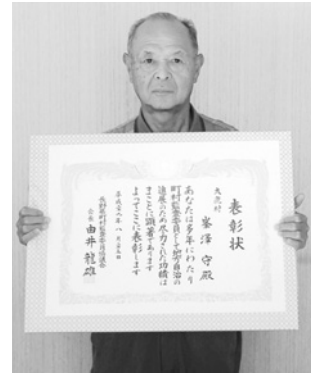 表彰状
大鹿村
峯澤守殿
あなたは多年にわたり
町村監査委員として地方自治の
進展のため尽力された功績は
まことに顕著であります
よってここに表彰します
平成二十八年八月二十五日
長野県町村監査委員協議会
会長 由井 龍雄